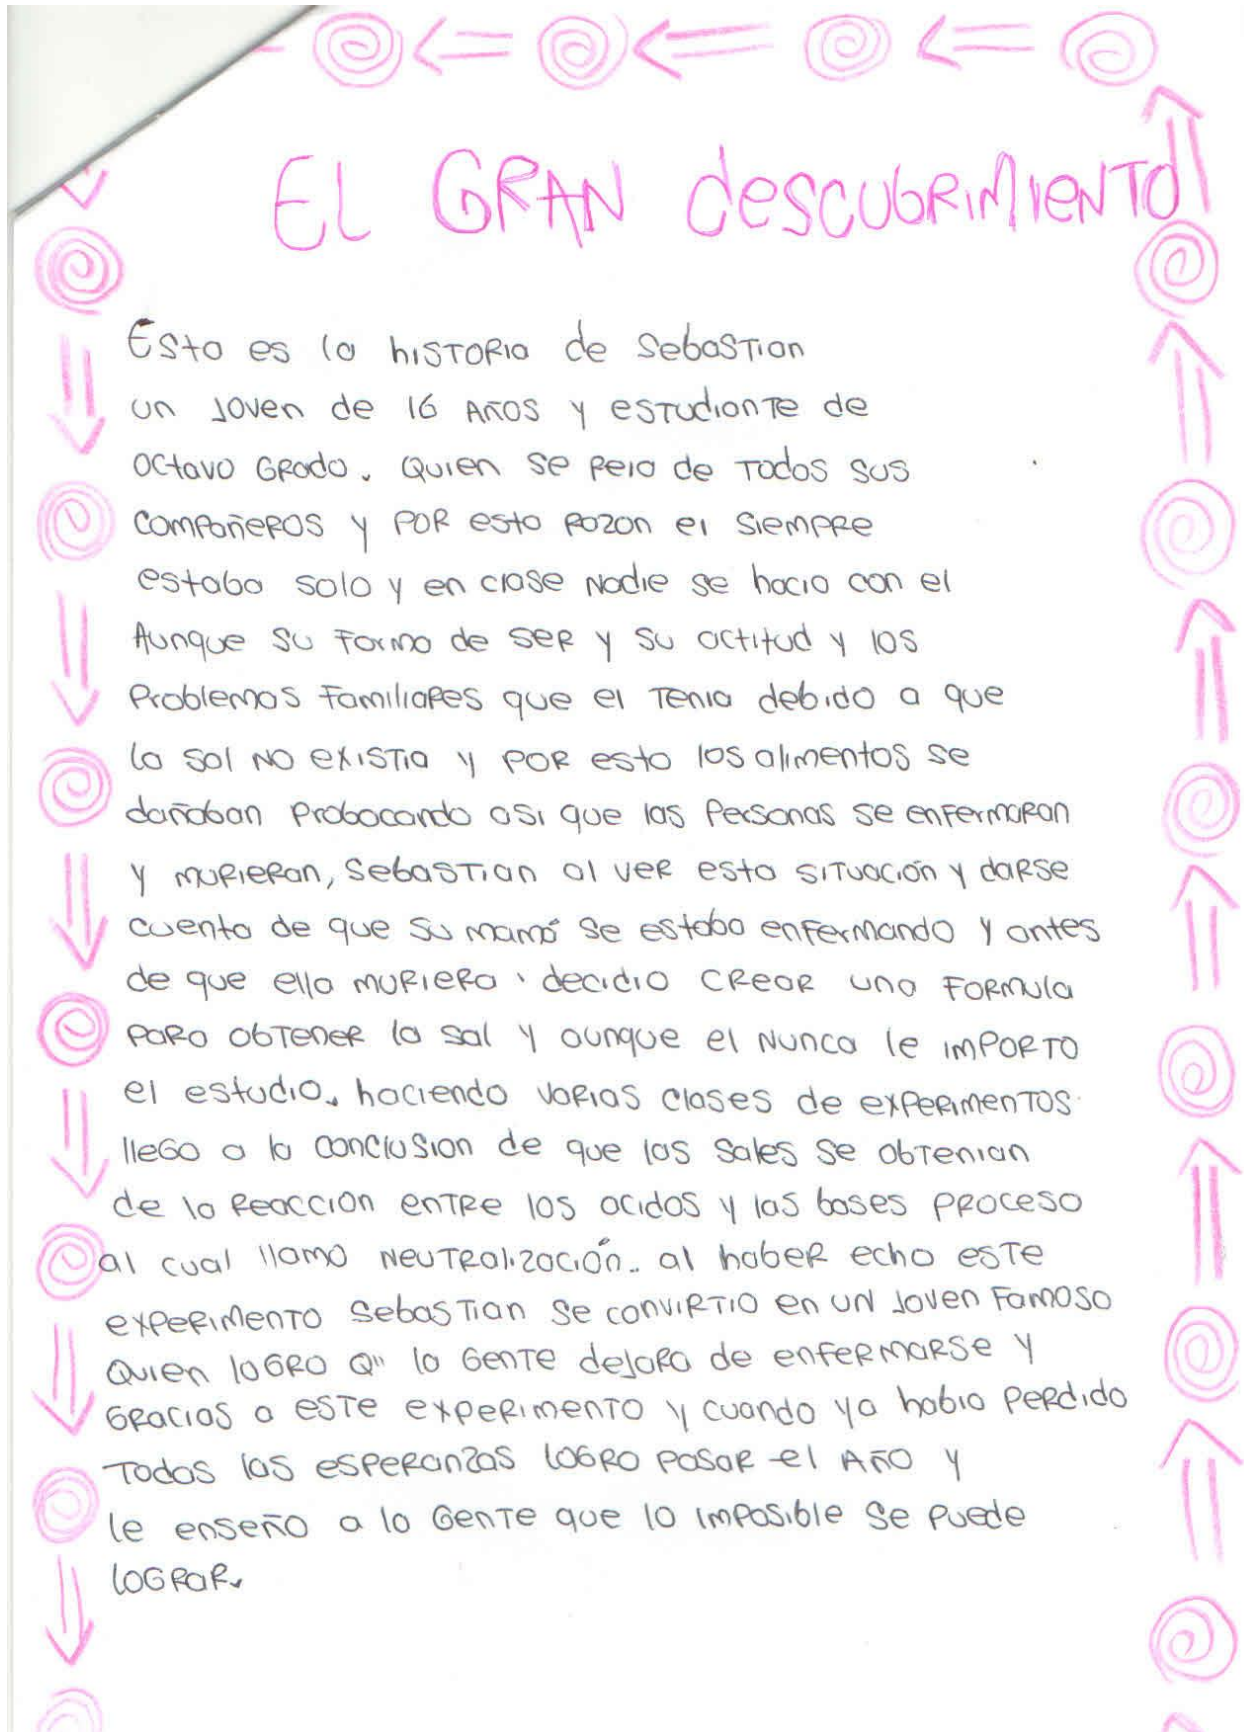 EL GRAN descubrimiento
Esta es la historia de Sebastian
un joven de 16 Años y estudiante de
Octavo Grado. Quien se reia de Todos sus
compañeros y por esta razon el siempre
estaba solo y en clase Nadie se hacia con el
Aunque su Forma de ser y su actitud y los
Problemas Familiares que el Tenia debido a que
la sal NO existia y por esto los alimentos se
dañaban Probocando asi que las Personas se enfermaran
y murieran, Sebastian al ver esta situación y darse
cuenta de que su mamá se estaba enfermando y antes
de que ella muriera, decidio crear una Formula
para obtener la sal y aunque el Nunca le importo
el estudio, haciendo varias clases de experimentos
llego a la conclusion de que las sales se obtenian
de la Reaccion entre los acidos y las bases proceso
al cual llamo Neutralización. al haber echo este
experimento Sebastian se convirtio en un joven Famoso
Quien logro Q" la Gente dejara de enfermarse y
Gracias a este experimento y cuando ya habia perdido
Todas las esperanzas logro pasar el Año y
le enseño a la Gente que lo imposible se puede
lograr.